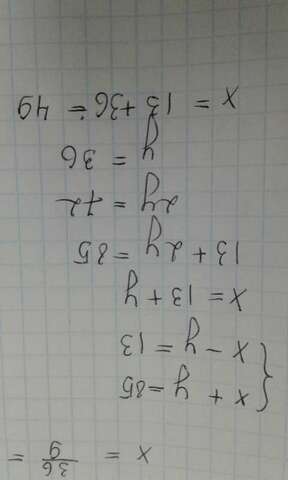 x = 36/9 =
x + y = 85
x - y = 13
x = 13 + y
13 + 2y = 85
2y = 72
y = 36
x = 13 + 36 = 49